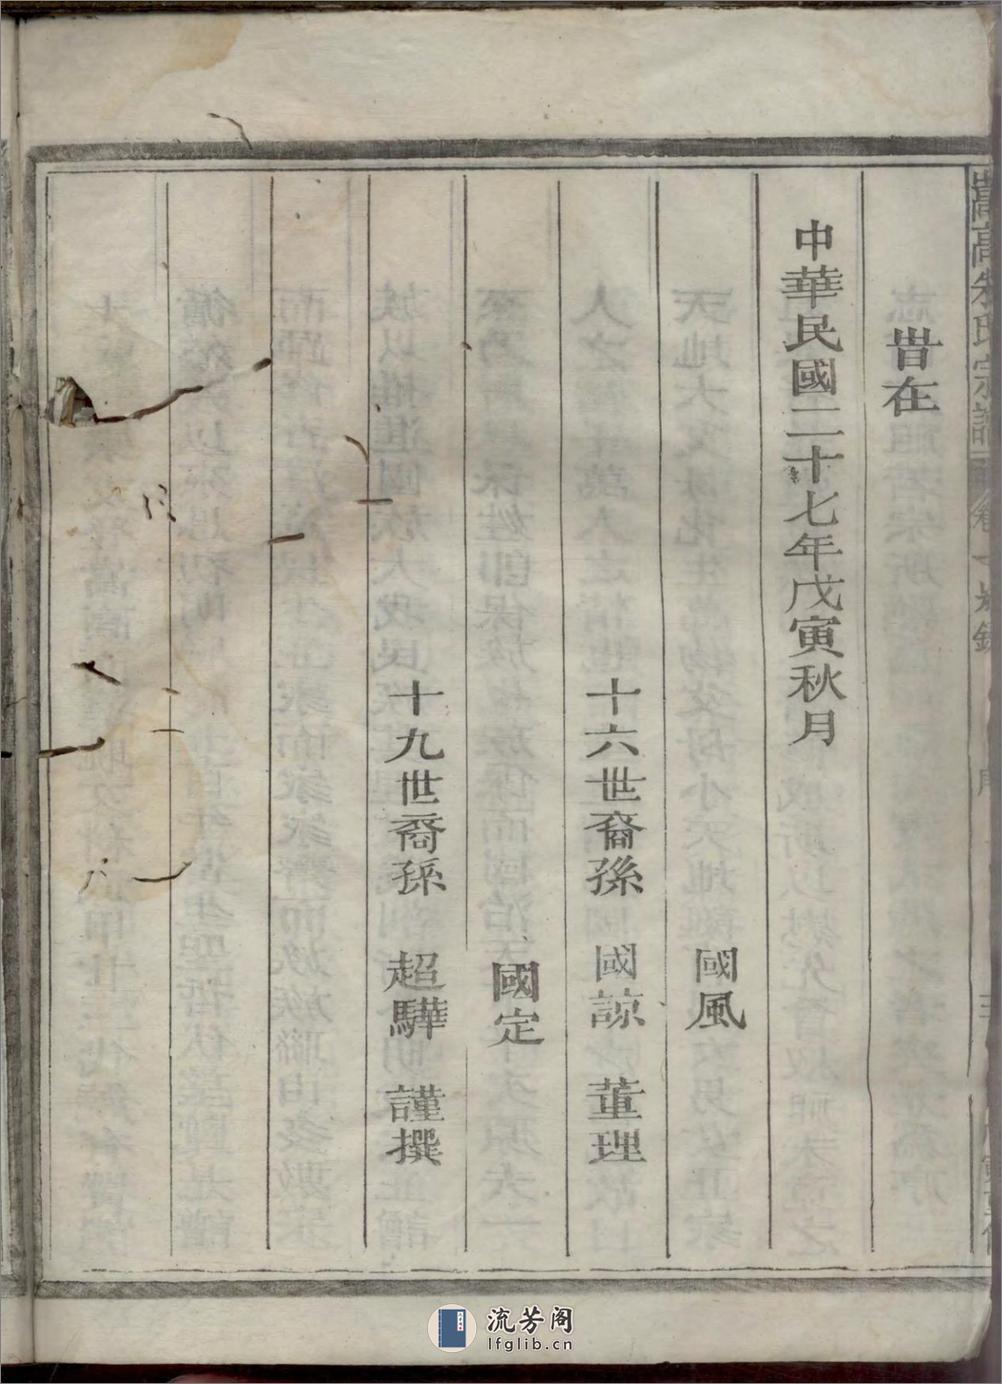 旹在
中華民國二十七年戊寅秋月
國風
十六世裔孫 國諒 董理
國定
十九世裔孫 超驊 謹撰
流芳阁
lfglib.cn